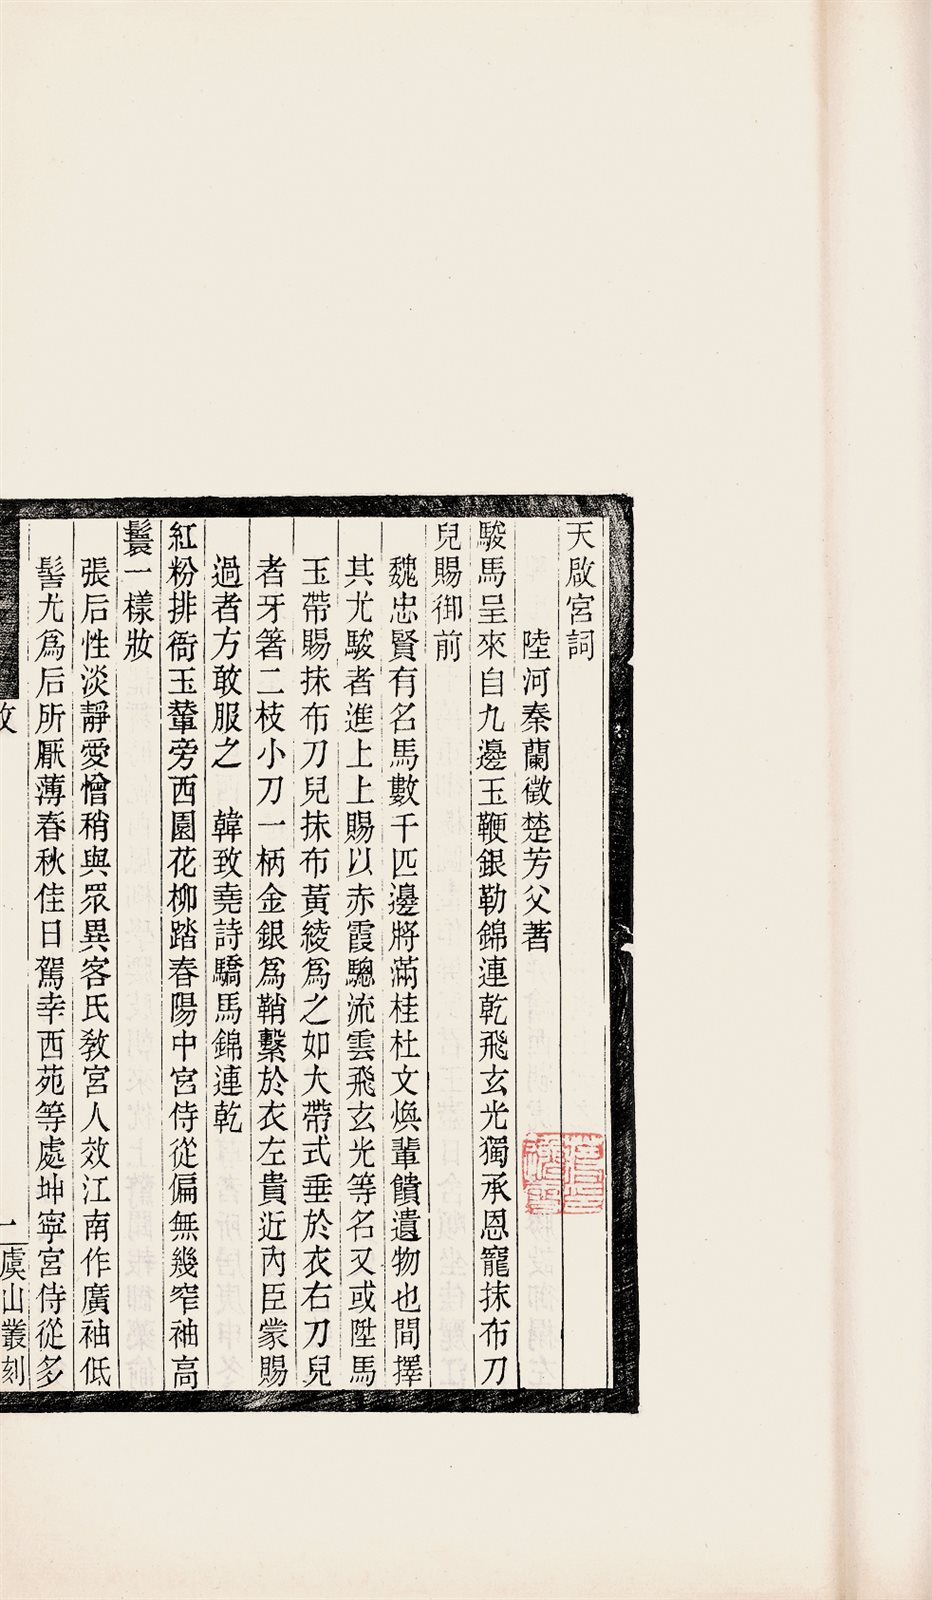 天啟宮詞
陸河秦蘭徵楚芳父著
駿馬呈來自九邊玉鞭銀勒錦連乾飛玄光獨承恩寵抹布刀
兒賜御前
魏忠賢有名馬數千匹邊將滿桂杜文煥輩饋遺物也間擇
其尤駿者進上上賜以赤霞驄流雲飛玄光等名又或陞馬
玉帶賜抹布刀兒抹布黃綾爲之如大帶式垂於衣右刀兒
者牙箸二枝小刀一柄金銀爲鞘繫於衣左貴近內臣蒙賜
過者方敢服之　韓致堯詩驕馬錦連乾
紅粉排衙玉輦旁西園花柳踏春陽中宮侍從偏無幾窄袖高
鬟一樣妝
張后性淡靜愛憎稍與眾異客氏敎宮人效江南作廣袖低
髻尤爲后所厭薄春秋佳日駕幸西苑等處坤寧宮侍從多
一
虞山叢刻